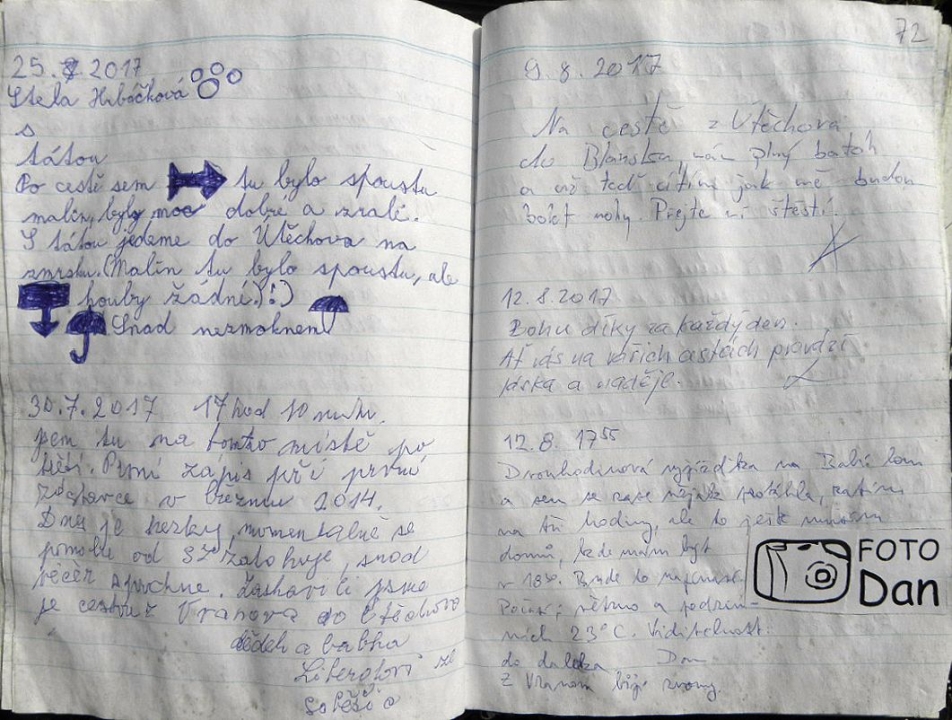 25. 7 2017
Stela Hrbáčková
s
tátou
Po cestě sem tu bylo spoustu
malin, byly moc dobré a zralí.
S tátou jedeme do Útěchova na
zmrzku. (Malin tu bylo spoustu, ale
houby žádní.):)
Snad nezmoknem!
30.7.2017 17 hod 10 min.
jsem tu na tomto místě po
třetí. První zápis při první
v březnu 2014.
Dnes je hezky, momentálně se
pomalu od zatahuje, snad
večer sprchne. Zastavili jsme
se cestou z Vranova do Útěchova
dědek a babka
ze
Soběšic
72
9.8.2017
Na cestě z Útěchova
do Blanska, mám plný batoh
a už teď cítím jak mě budou
bolet nohy. Přejte mi štěstí.
12.8.2017
Bohu díky za každý den.
Ať vás na vašich cestách provází
láska a naděje.
12.8. 17⁵⁵
Dvouhodinová vyjížďka na Babí lom
a sem se zase nějak protáhla, zatím
na tři hodiny, ale to ještě nejsem
doma, kde mám být
v 18³⁰. Bude to nejmíň
Počasí; větrno a podzim-
ních 23°C. Viditelnost:
do daleka Dan
Z Vranova bijí zvony.
FOTO
Dan